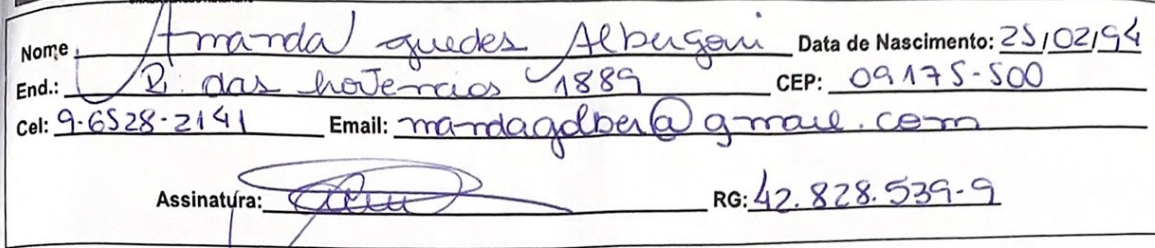 Nome Amanda guedes Albergoni Data de Nascimento: 25/02/94
End.: R. das hortencias 1889 CEP: 09175-500
Cel: 9-6528-2141 Email: mandagalber@gmail.com
Assinatura: RG: 42.828.539-9